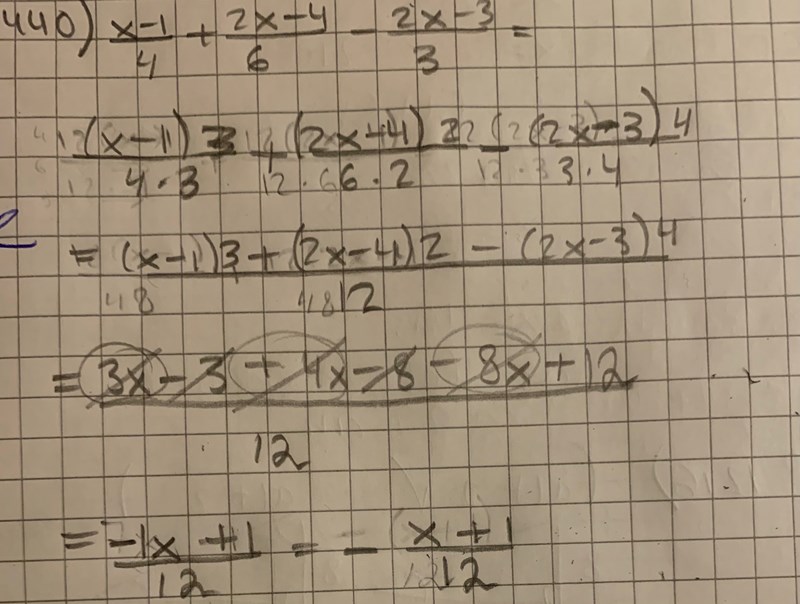 440) (x-1)/4 + (2x-4)/6 - (2x-3)/3 =
(x-1)3/(4·3) + (2x-4)2/(6·2) - (2x-3)4/(3·4)
= ((x-1)3 + (2x-4)2 - (2x-3)4)/12
= (3x - 3 + 4x - 8 - 8x + 12)/12
= (-1x + 1)/12 = - (x + 1)/12